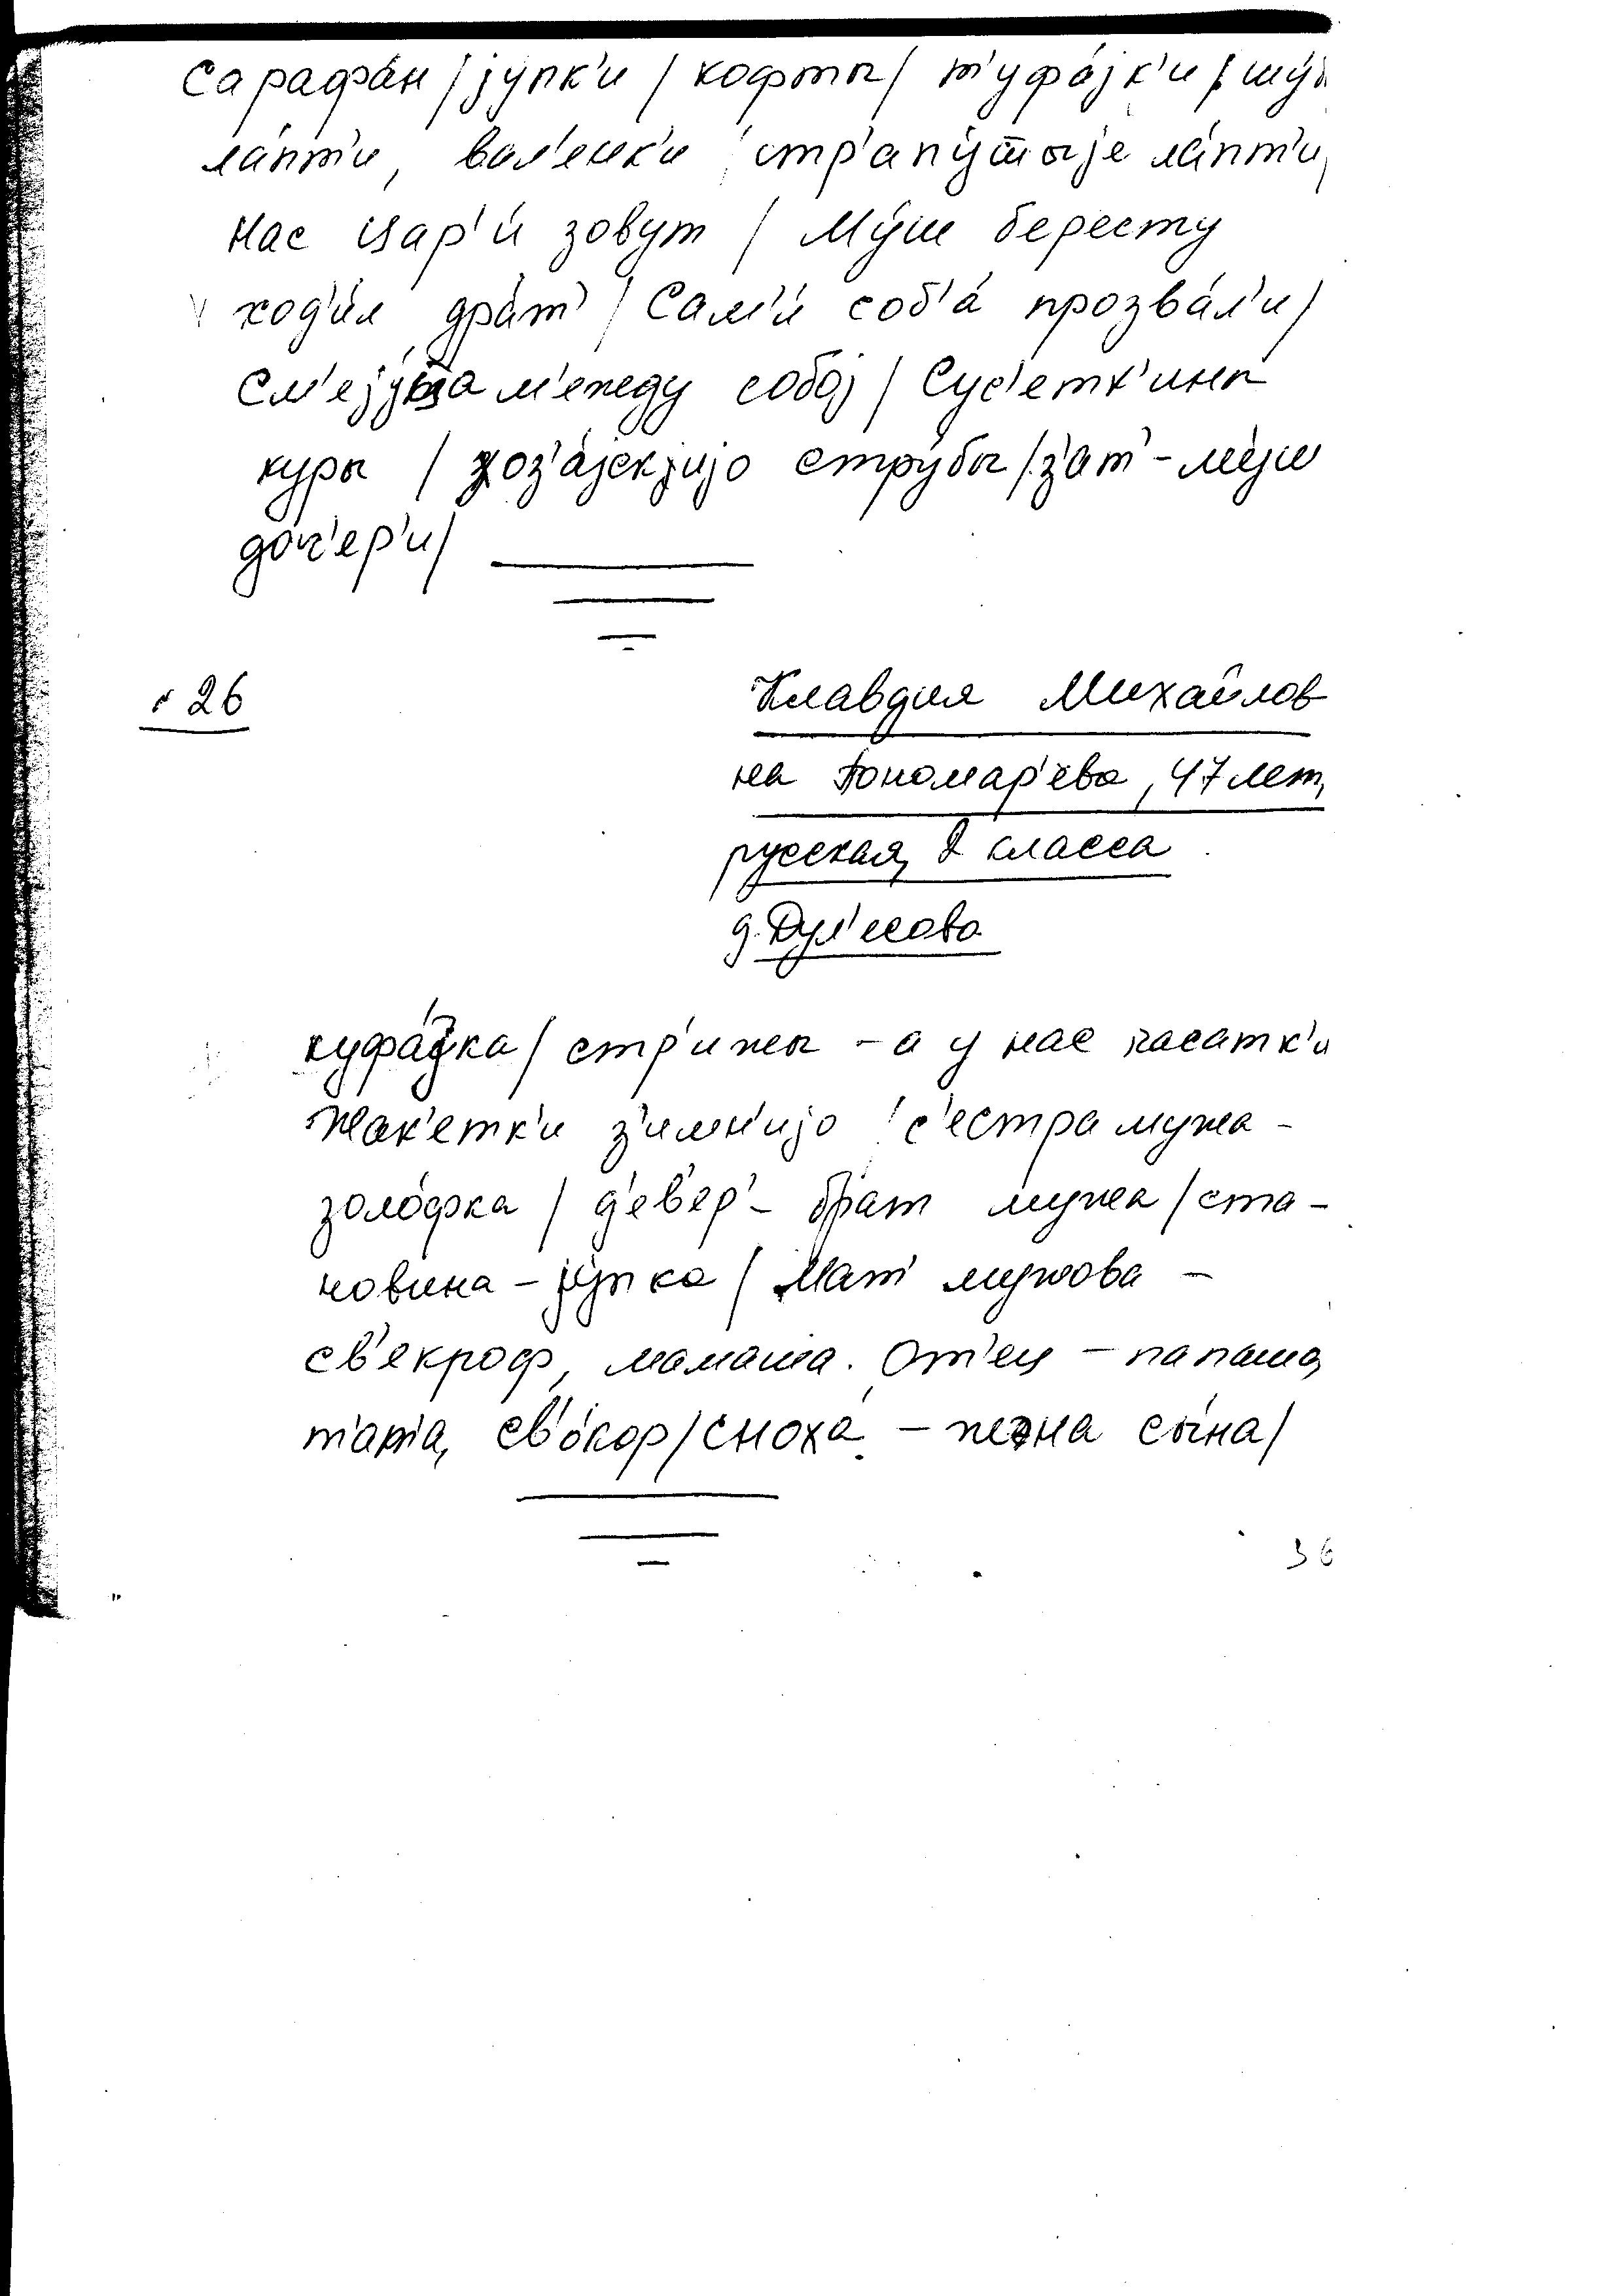 Сарафа́н / jу́пк'и / кофты / т'уфа́jк'и / шу́
ла́пт'и, вал'енк'и стр'апу́шыjе ла́пт'и,
Нас цар'и́ зовут / Му́ш бересту
ход'и́л дра́т' / Сам'и́ соб'а́ прозва́л'и /
См'еjу́ца м'ежду собоj / Сус'етк'ины
куры / хоз'а́jскjиjо стру́бы / з'ат' - му́ш
до́ч'ер'и /
26
Клавдия Михайлов
на Пономар'ёва, 47 лет,
русская, 8 класса
д. Дул'есово
куфа́йка / стр'ижы - а у нас касатк'и
Жак'етк'и з'имн'иjо с'естра мужа -
золо́фка / д'ев'ер' - брат мужа / ста-
новина - jу́пка / Мат' мужова -
св'екроф, мамаша. От'ец - папаша,
т'ат'а, св'о́кор / сноха́ - жена сы́на /
36